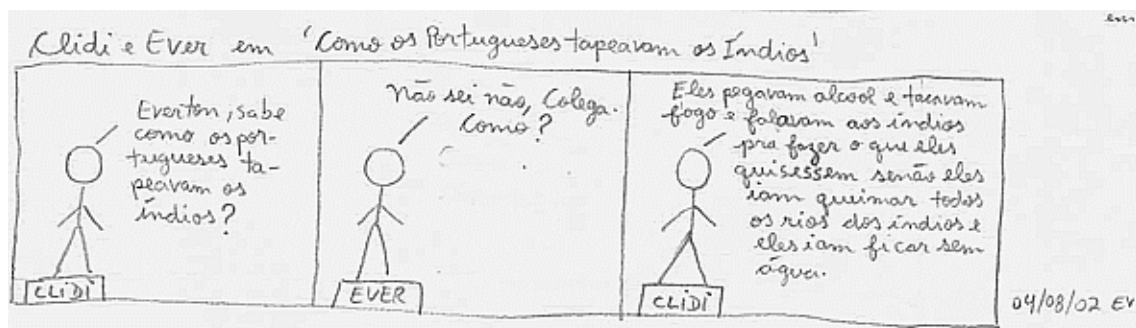 Clidi e Ever em 'Como os Portugueses tapeavam os Índios'
Everton, sabe
como os por-
tugueses ta-
peavam os
índios?
CLIDI
Não sei não, Colega.
Como?
EVER
Eles pegavam alcool e tacavam
fogo e falavam aos índios
pra fazer o que eles
quisessem senão eles
iam queimar todos
os rios dos índios e
eles iam ficar sem
água.
CLIDI
04/08/02 EV